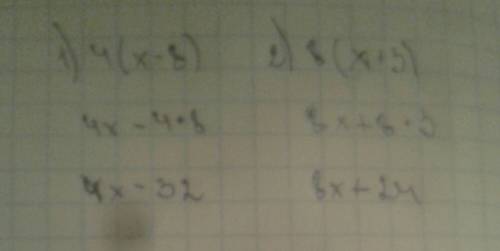 1) 4(x-8) 2) 8(x+3)
4x-4·8 8x+8·3
4x-32 8x+24